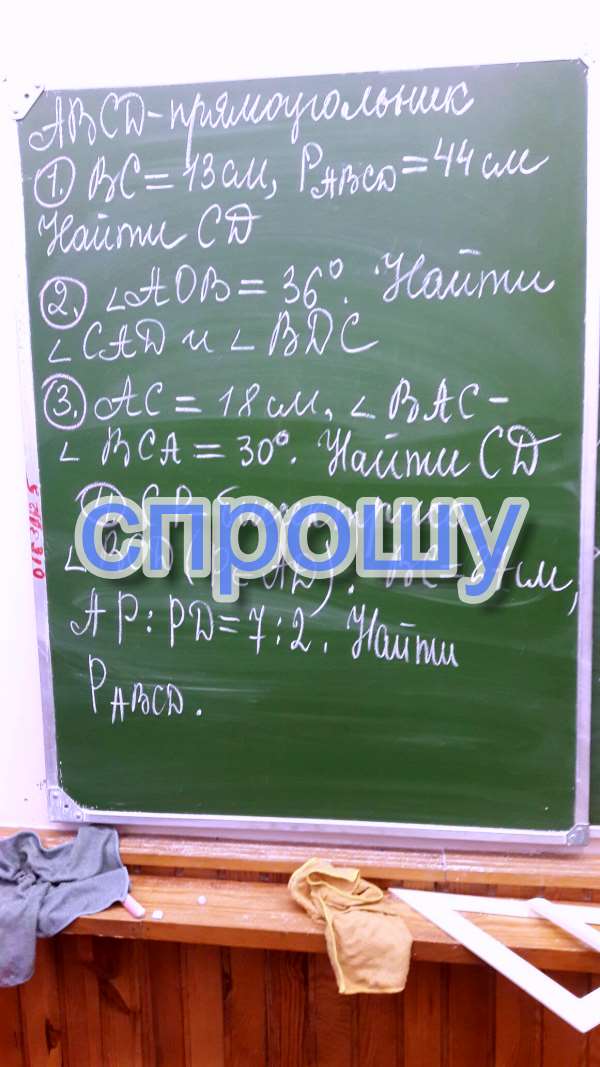 ABCD-прямоугольник
1. BC = 13 см, P ABCD = 44 см
Найти CD
2. ∠AOB = 36°. Найти
∠CAD и ∠BDC
3. AC = 18 см, ∠BAC-
∠BCA = 30°. Найти CD
спрошу
AP : PD = 7 : 2. Найти
P ABCD.